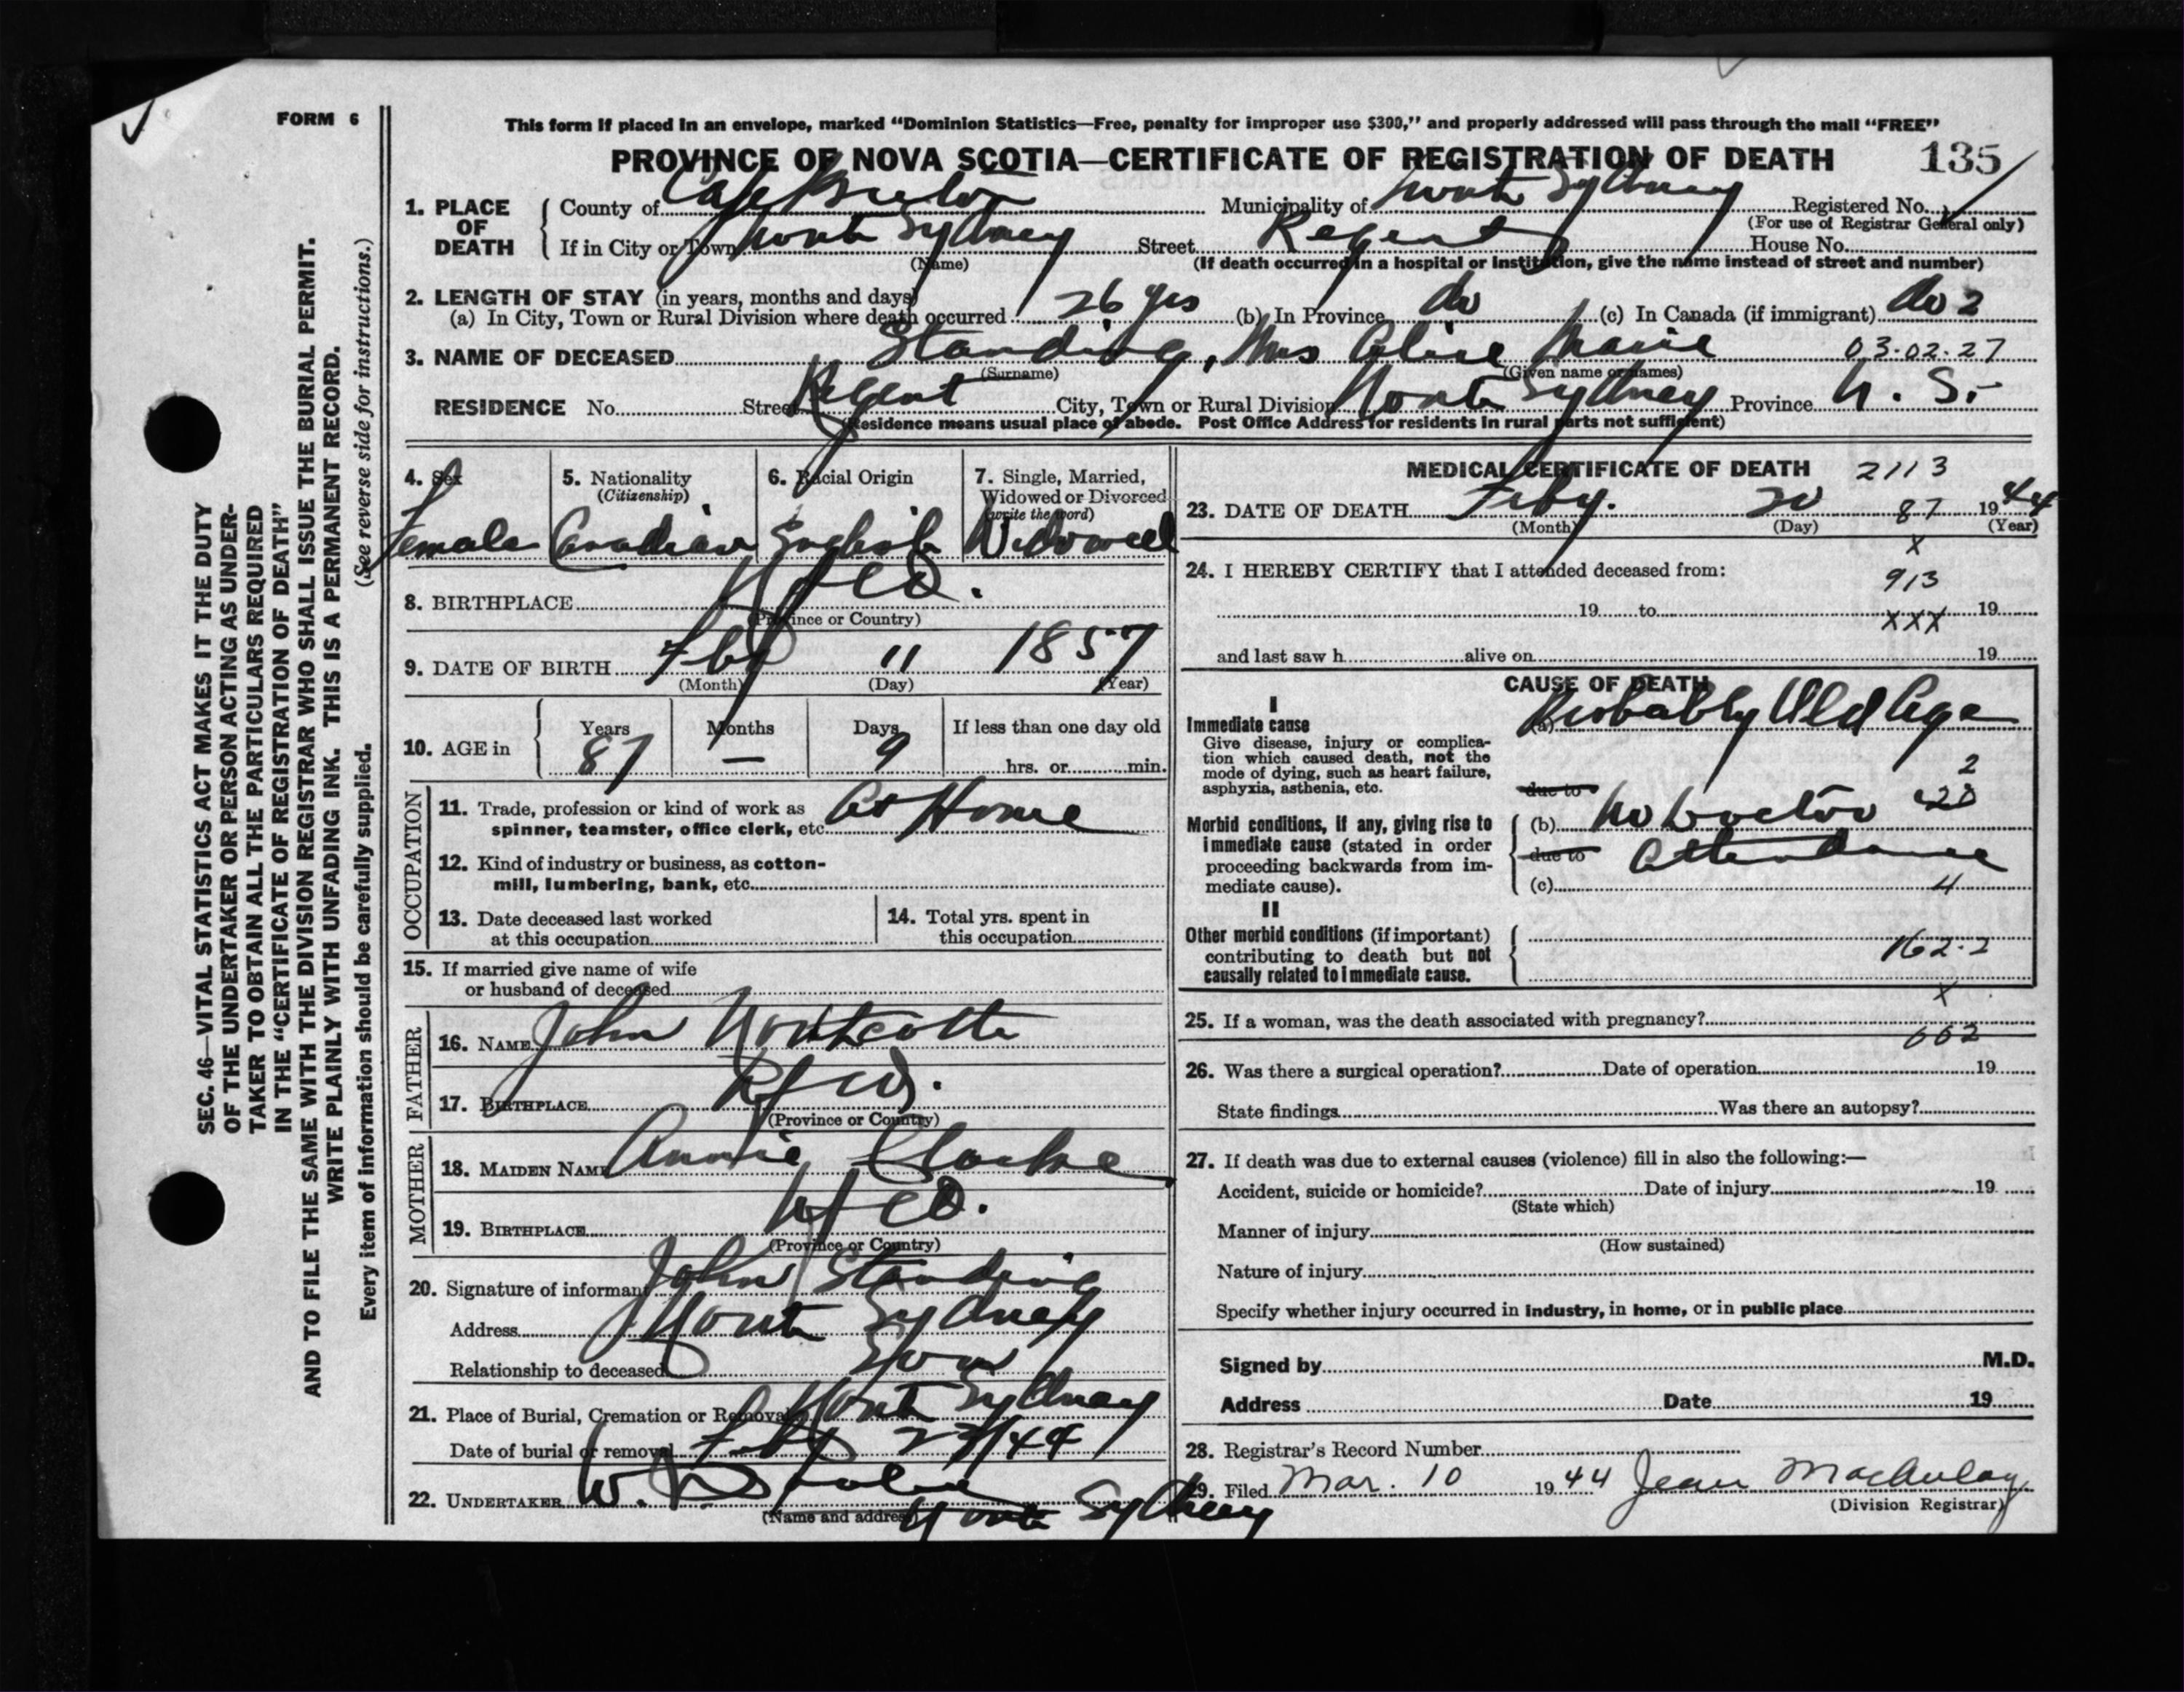 FORM 6
This form if placed in an envelope, marked "Dominion Statistics—Free, penalty for improper use $300," and properly addressed will pass through the mail "FREE"
PROVINCE OF NOVA SCOTIA—CERTIFICATE OF REGISTRATION OF DEATH 135
1. PLACE OF DEATH
County of Cape Breton Municipality of North Sydney Registered No.
(For use of Registrar General only)
If in City or Town North Sydney Street Regent House No.
(Name) (If death occurred in a hospital or institution, give the name instead of street and number)
2. LENGTH OF STAY (in years, months and days)
(a) In City, Town or Rural Division where death occurred 26 yrs (b) In Province do (c) In Canada (if immigrant) do 2
3. NAME OF DECEASED Standing, Mrs Alice Marie 03.02.27
(Surname) (Given name or names)
RESIDENCE No. Street Regent City, Town or Rural Division North Sydney Province N. S.
(Residence means usual place of abode. Post Office Address for residents in rural parts not sufficient)
4. Sex 5. Nationality 6. Racial Origin 7. Single, Married,
(Citizenship) Widowed or Divorced
(write the word)
Female Canadian English Widowed
8. BIRTHPLACE Nfld.
(Province or Country)
9. DATE OF BIRTH Feby 11 1857
(Month) (Day) (Year)
10. AGE in Years Months Days If less than one day old
87 — 9 hrs. or min.
OCCUPATION
11. Trade, profession or kind of work as
spinner, teamster, office clerk, etc. At Home
12. Kind of industry or business, as cotton-
mill, lumbering, bank, etc.
13. Date deceased last worked
at this occupation
14. Total yrs. spent in
this occupation
15. If married give name of wife
or husband of deceased
FATHER
16. NAME John Northcotte
17. BIRTHPLACE Nfld.
(Province or Country)
MOTHER
18. MAIDEN NAME Annie Clarke
19. BIRTHPLACE Nfld.
(Province or Country)
20. Signature of informant John Standing
Address North Sydney
Relationship to deceased Son
21. Place of Burial, Cremation or Removal North Sydney
Date of burial or removal Feby /44
22. UNDERTAKER W.
(Name and address) North Sydney
MEDICAL CERTIFICATE OF DEATH 2113
23. DATE OF DEATH Feby. 20 87 1944
(Month) (Day) (Year)
x
24. I HEREBY CERTIFY that I attended deceased from:
913
19 to 19
xxx
and last saw h alive on 19
CAUSE OF DEATH
I
Immediate cause (a) Probably Old Age
Give disease, injury or complica-
tion which caused death, not the
mode of dying, such as heart failure,
asphyxia, asthenia, etc.
2
due to
Morbid conditions, if any, giving rise to
immediate cause (stated in order
proceeding backwards from im-
mediate cause).
(b) No Doctor
due to attendance
(c) 4
II
Other morbid conditions (if important)
contributing to death but not
causally related to immediate cause.
162.2
x
25. If a woman, was the death associated with pregnancy?
662
26. Was there a surgical operation? Date of operation 19
State findings Was there an autopsy?
27. If death was due to external causes (violence) fill in also the following:—
Accident, suicide or homicide? Date of injury 19
(State which)
Manner of injury
(How sustained)
Nature of injury
Specify whether injury occurred in industry, in home, or in public place
Signed by M.D.
Address Date 19
28. Registrar's Record Number
29. Filed Mar. 10 1944 Jean MacAulay
(Division Registrar)
SEC. 46—VITAL STATISTICS ACT MAKES IT THE DUTY
OF THE UNDERTAKER OR PERSON ACTING AS UNDER-
TAKER TO OBTAIN ALL THE PARTICULARS REQUIRED
IN THE "CERTIFICATE OF REGISTRATION OF DEATH"
AND TO FILE THE SAME WITH THE DIVISION REGISTRAR WHO SHALL ISSUE THE BURIAL PERMIT.
WRITE PLAINLY WITH UNFADING INK. THIS IS A PERMANENT RECORD.
Every item of information should be carefully supplied. (See reverse side for instructions.)